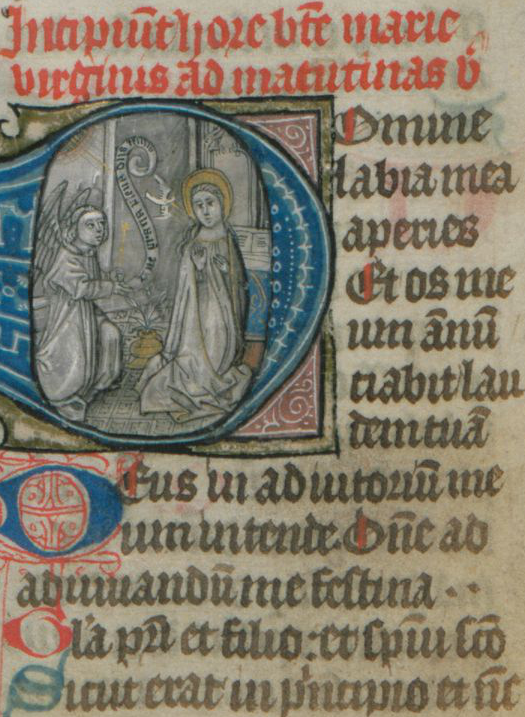 Incipiūt hore bt̄e marie
virginis ad matutinas v̄
ave gratia plena dn̄s
Domine
labia mea
aperies
Et os me
um ānū
ciabit lau
dem tuā
Deus in ad iutoriū me
um intende. Dn̄e ad
adiuuandū me festina ··
Gl̄a pr̄i et filio: et spiū sc̄o
Sicut erat in p'ncipio et nc̄